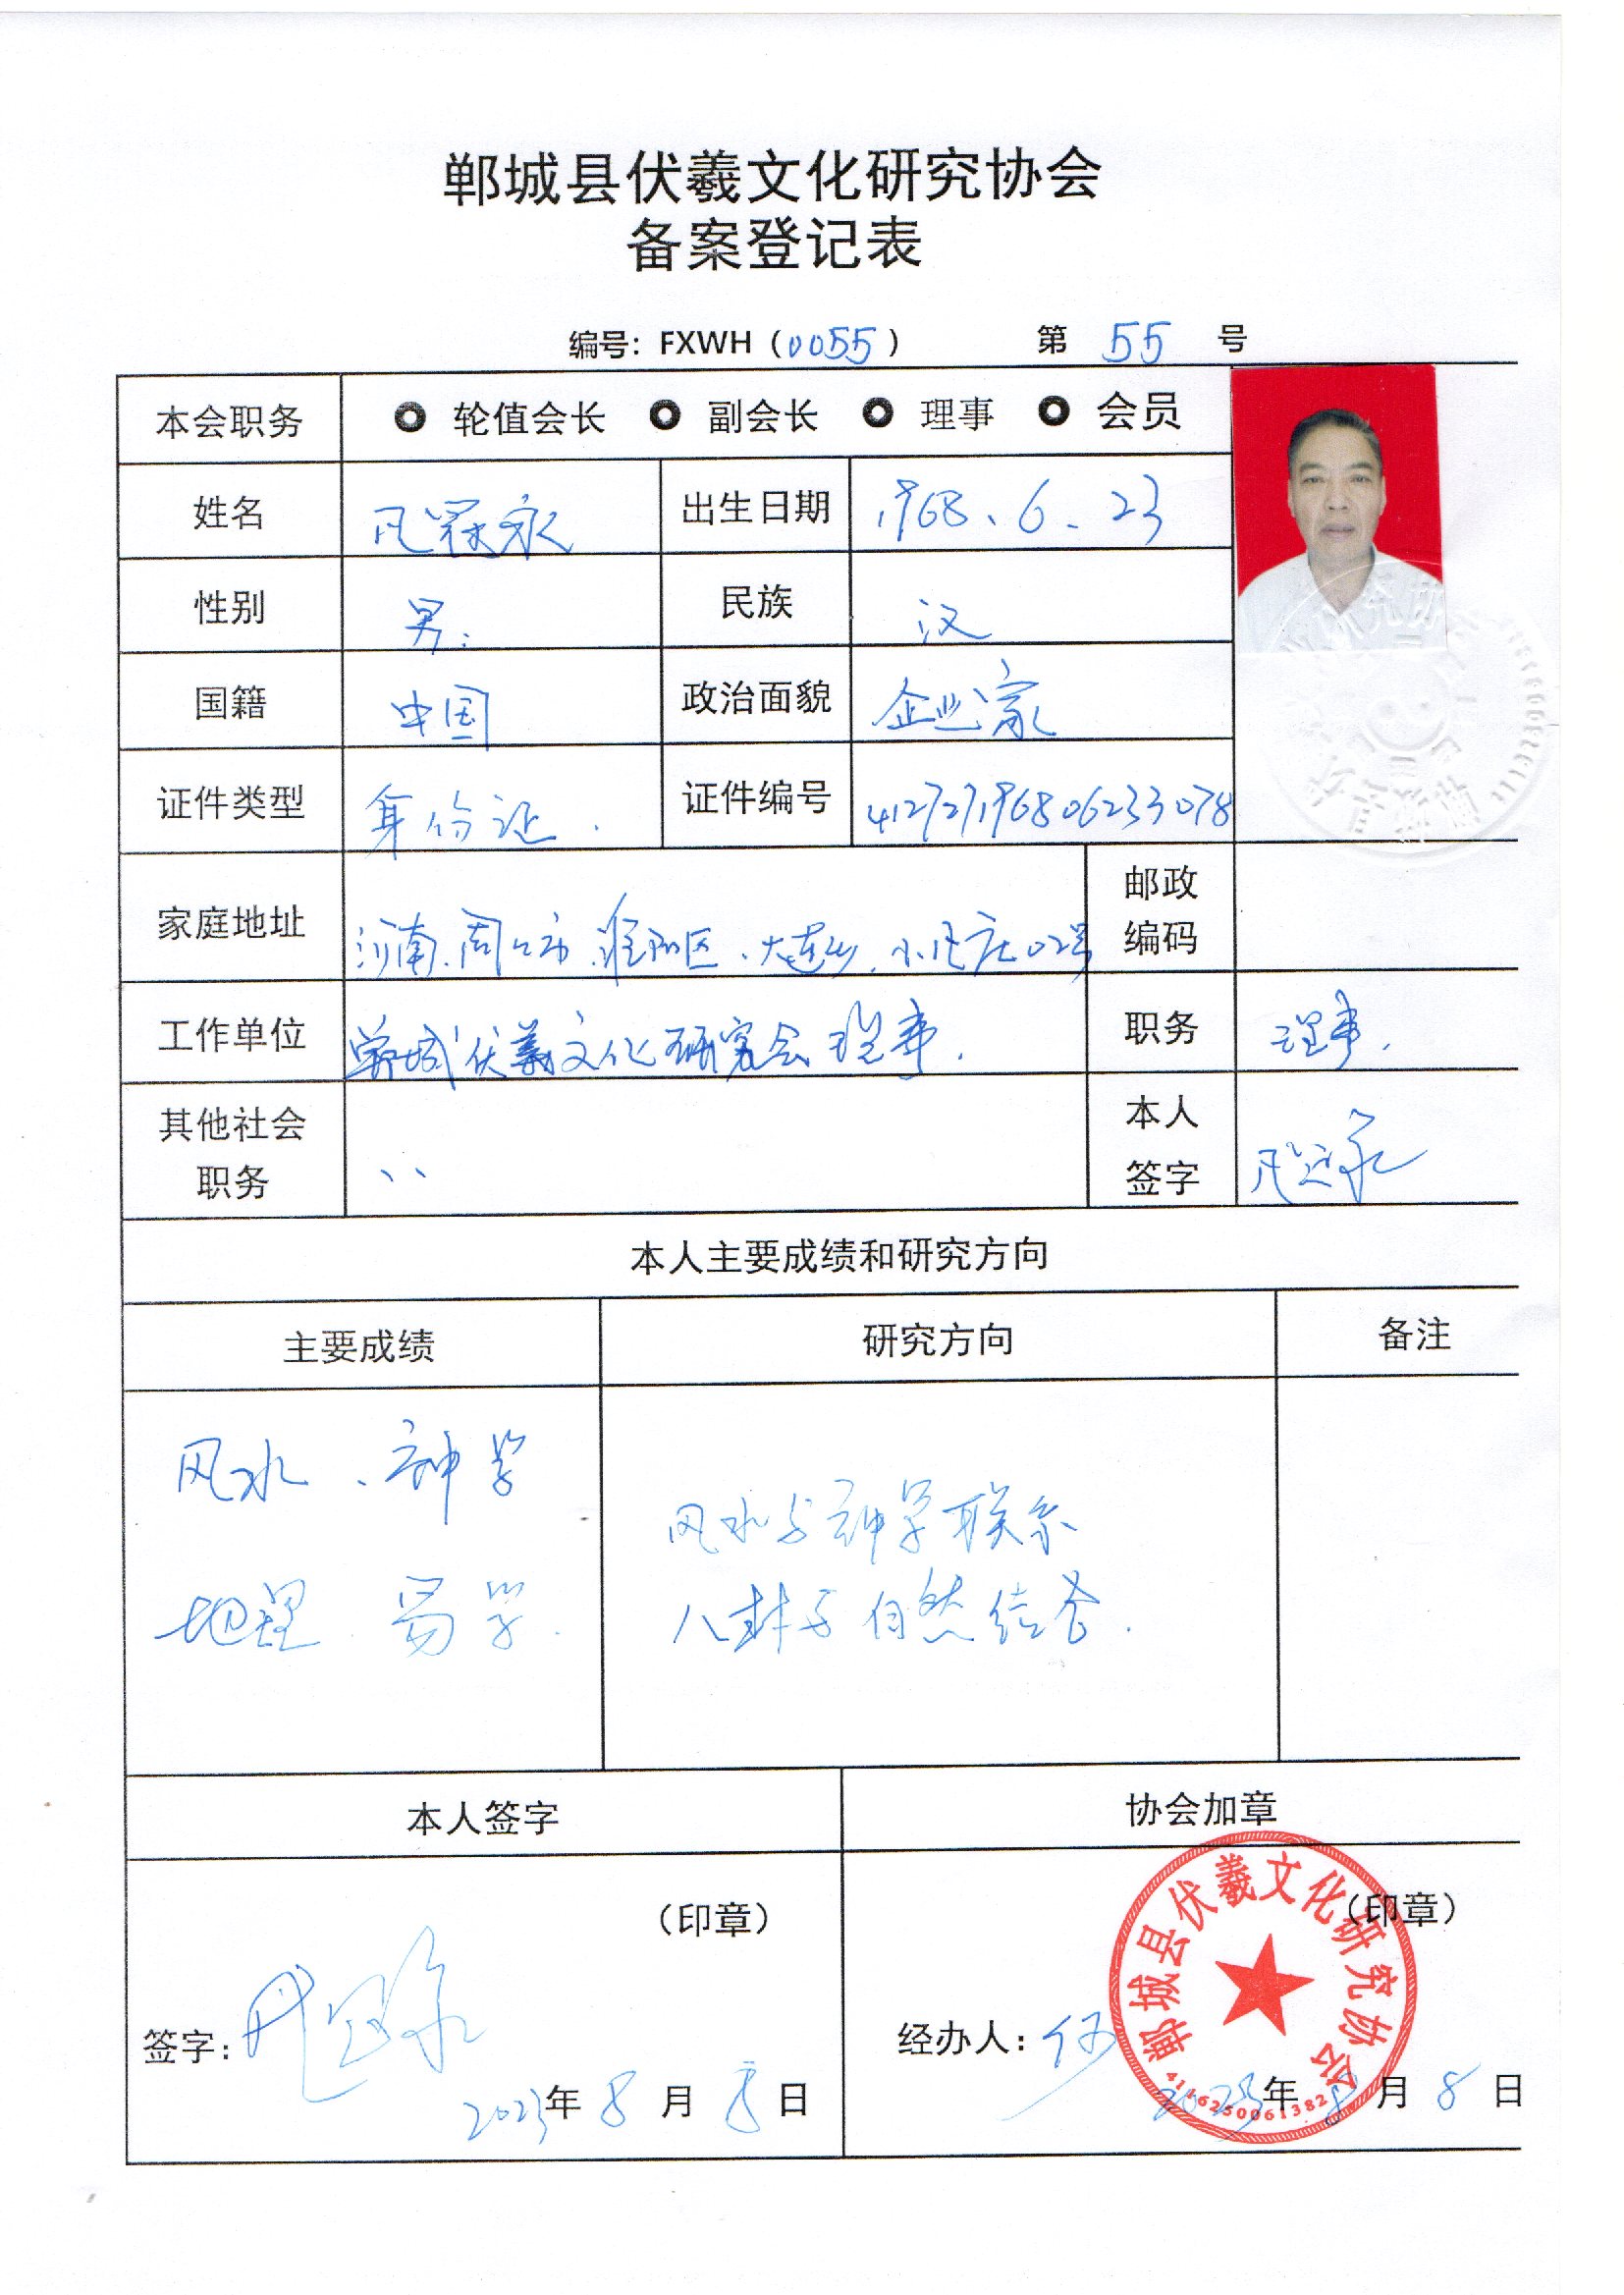 郸城县伏羲文化研究协会
备案登记表
编号：FXWH（0055） 第 55 号
本会职务 轮值会长 副会长 理事 会员
姓名 出生日期 1968、6、23
性别 男 民族 汉
国籍 中国 政治面貌 企业家
证件类型 身份证. 证件编号 412727196806233078
家庭地址 河南.周口市.淮阳区、大连乡. 02号 邮政编码
工作单位 郸城伏羲文化研究会理事. 职务 理事.
其他社会职务 本人签字
本人主要成绩和研究方向
主要成绩 研究方向 备注
风水、神学
风水与神学联系
地理 易学.
八卦与自然结合.
本人签字 协会加章
（印章） （印章）
签字： 经办人：
2023年8月8日 2023年8月8日
郸城县伏羲文化研究协会
4116250061382